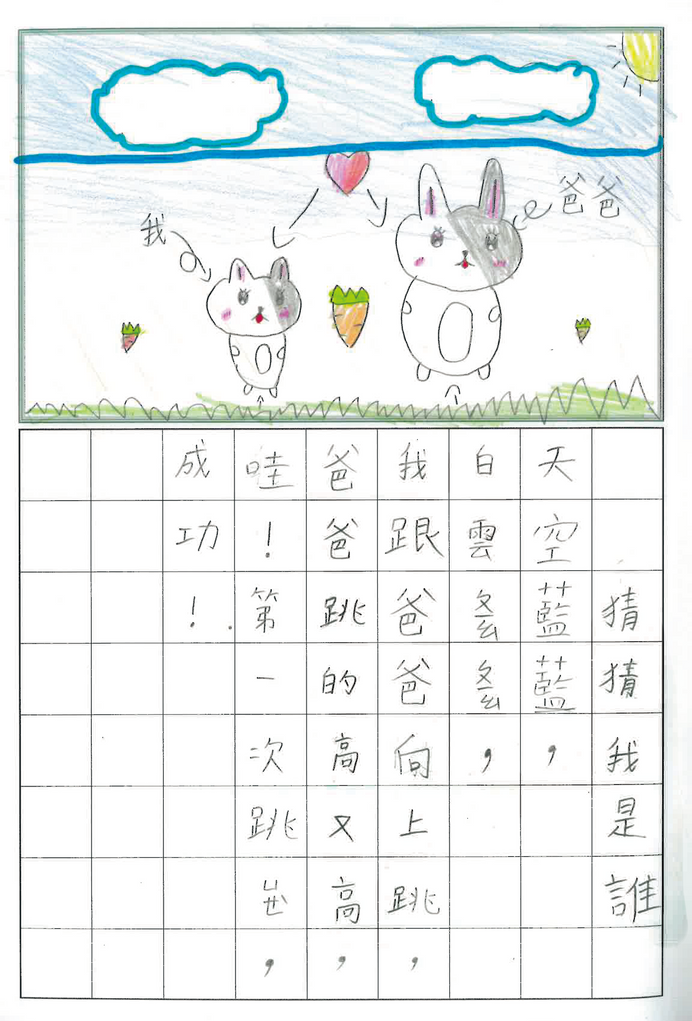 我
爸爸
猜猜我是誰
天空藍藍，
白雲，
我跟爸爸向上跳，
爸爸跳的高又高，
哇！第一次跳，
成功！